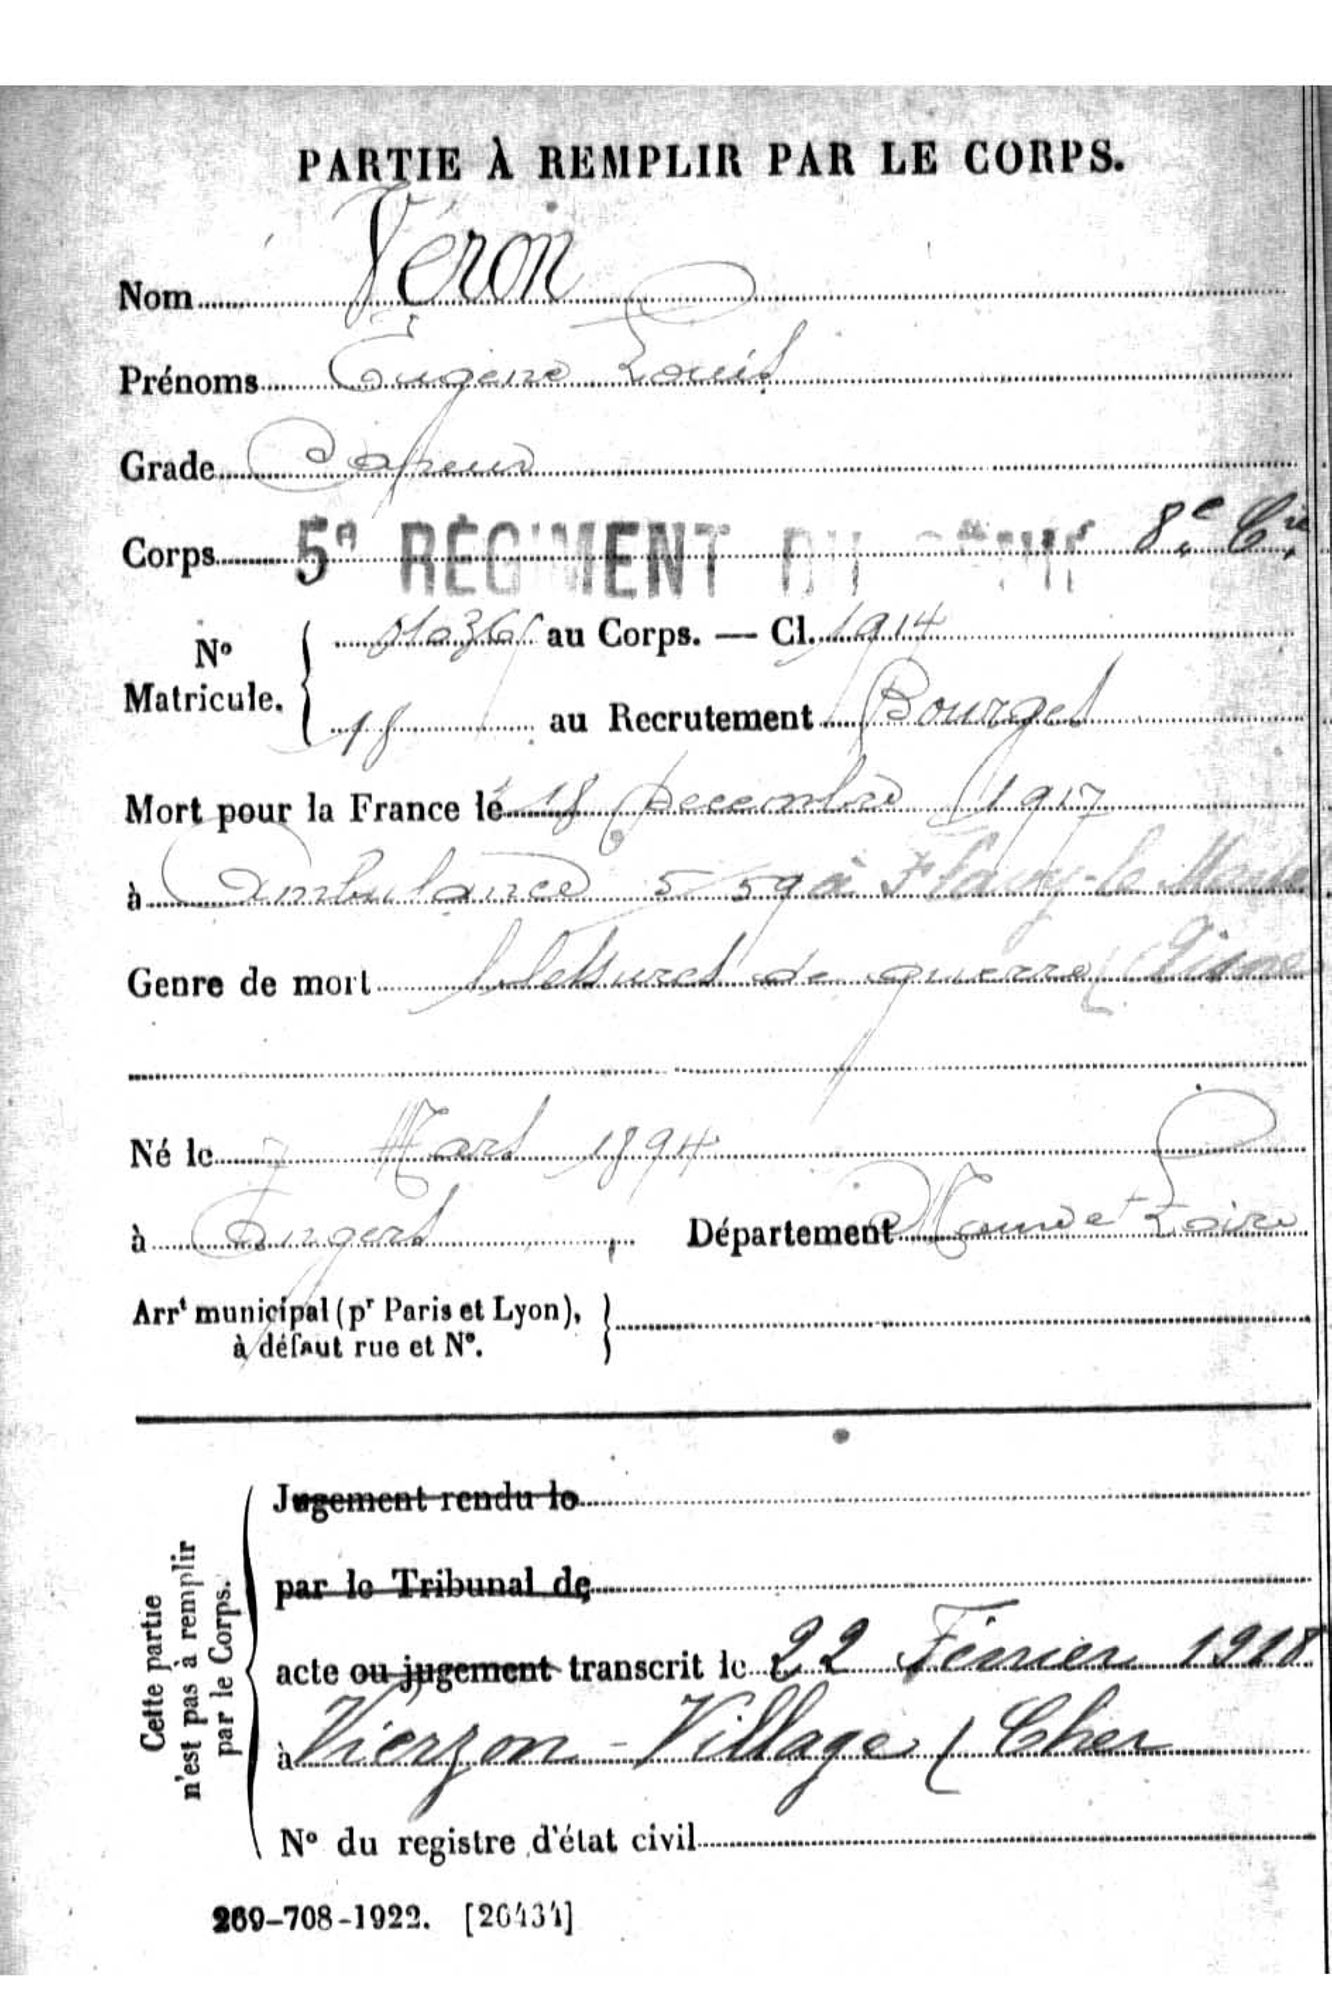 PARTIE À REMPLIR PAR LE CORPS.
Nom Véron
Prénoms Eugène Louis
Grade Sapeur
Corps 5e RÉGIMENT DU GÉNIE 8e Cie
No Matricule. au Corps. — Cl. 1914
18 au Recrutement Bourges
Mort pour la France le 18 Décembre 1917
à Ambulance 5/59 à Flavy-le-Martel
Genre de mort blessures de guerre (Aisne
Né le 7 Mars 1894
à Angers, Département Maine et Loire
Arrt municipal (pr Paris et Lyon),
à défaut rue et No.
Cette partie
n'est pas à remplir
par le Corps.
Jugement rendu le
par le Tribunal de
acte ou jugement transcrit le 22 Février 1918
à Vierzon-Village (Cher
No du registre d'état civil
269-708-1922. [26434]